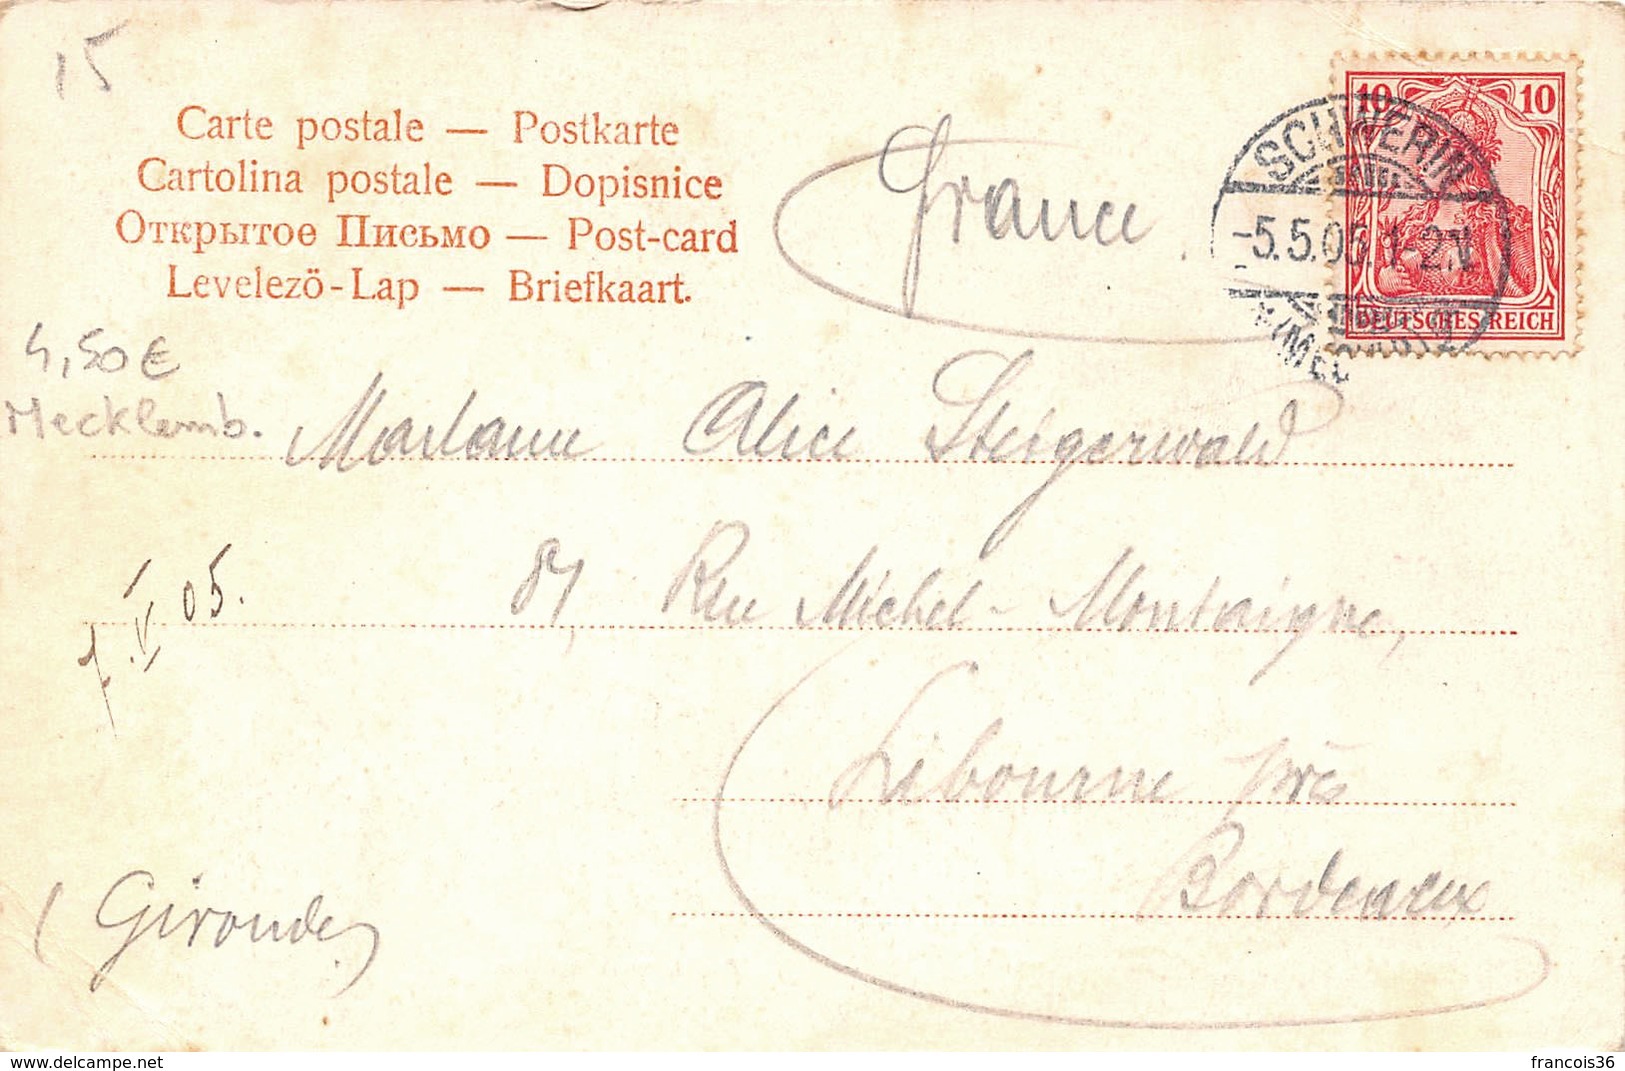 15
Carte postale — Postkarte
Cartolina postale — Dopisnice
Открытое Письмо — Post-card
Levelezö-Lap — Briefkaart.
France
10 10
DEUTSCHES REICH
SCHWERIN
-5.5.05. 1-2.N
4,50€
Mecklemb.
Madame Alice Steigerwald
87, Rue Michel-Montaigne,
V 05.
Libourne près
Bordeaux
(Gironde)
delcampe.net
francois36